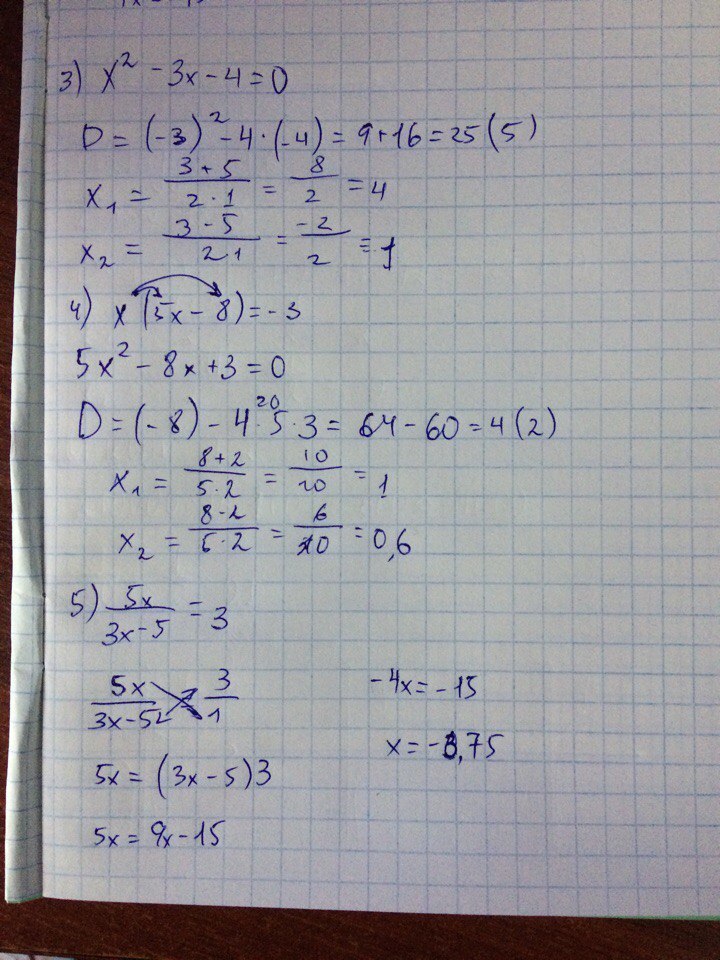 3) x² - 3x - 4 = 0
D = (-3)² - 4 · (-4) = 9 + 16 = 25 (5)
x₁ = (3 + 5)/(2 · 1) = 8/2 = 4
x₂ = (3 - 5)/(2 1) = -2/2 = 1
4) x (5x - 8) = -3
5x² - 8x + 3 = 0
20
D = (-8) - 4 · 5 · 3 = 64 - 60 = 4 (2)
x₁ = (8 + 2)/(5 · 2) = 10/10 = 1
x₂ = (8 - 2)/(5 · 2) = 6/10 = 0,6
5) 5x/(3x - 5) = 3
5x/(3x - 5) = 3/1
5x = (3x - 5)3
5x = 9x - 15
-4x = -15
x = -3,75